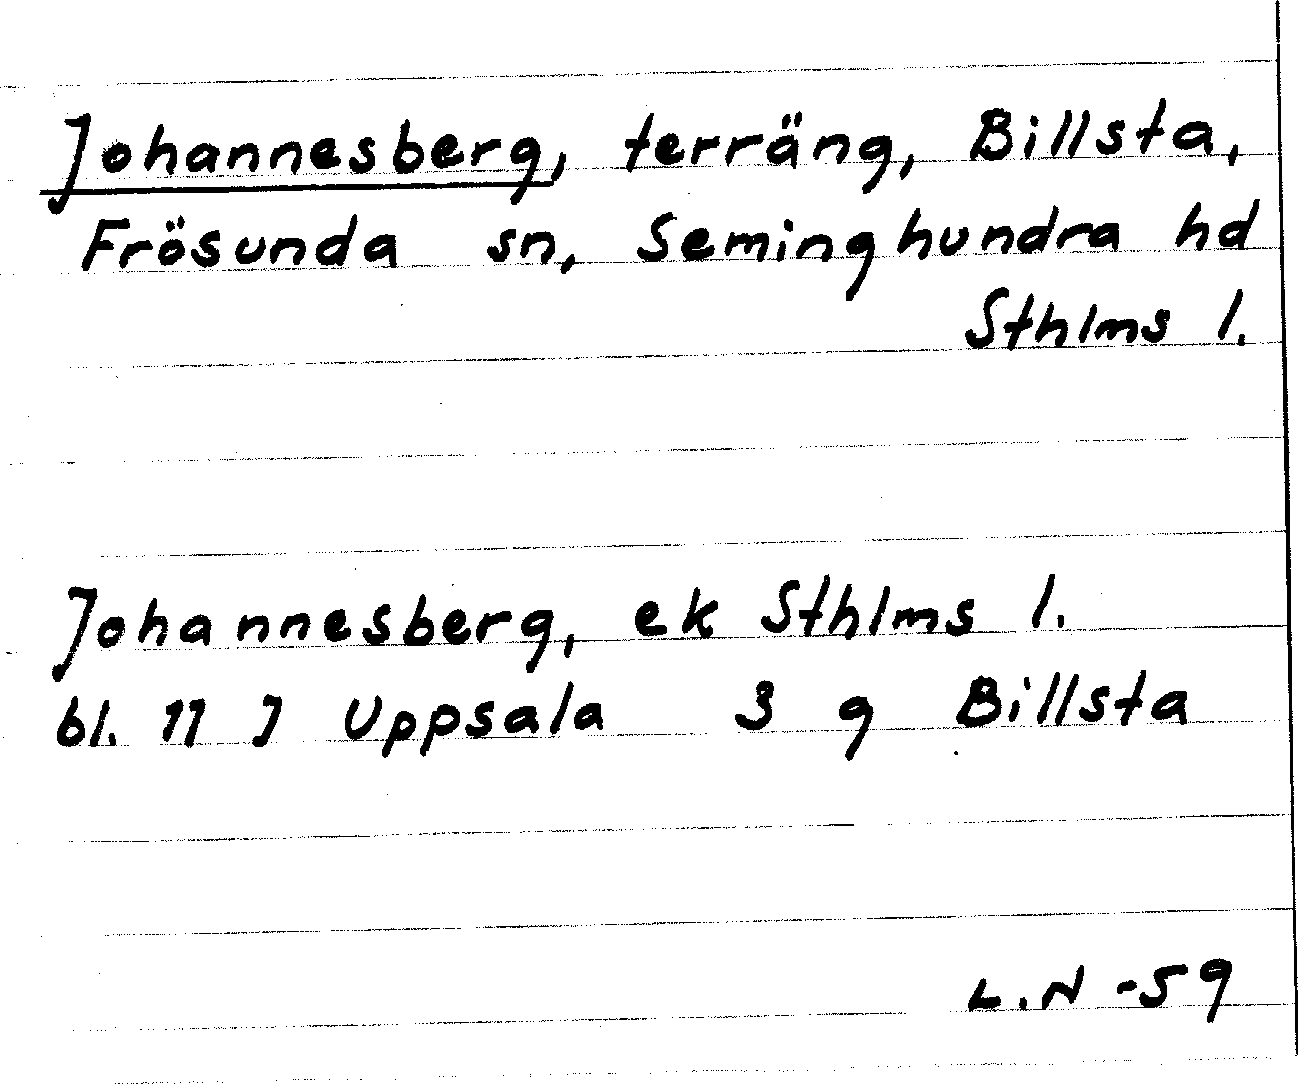 Johannesberg, terräng, Billsta,
Frösunda sn, Seminghundra hd
Sthlms l.
Johannesberg, ek Sthlms l.
bl. 11 J Uppsala 3 g Billsta
L.N -59